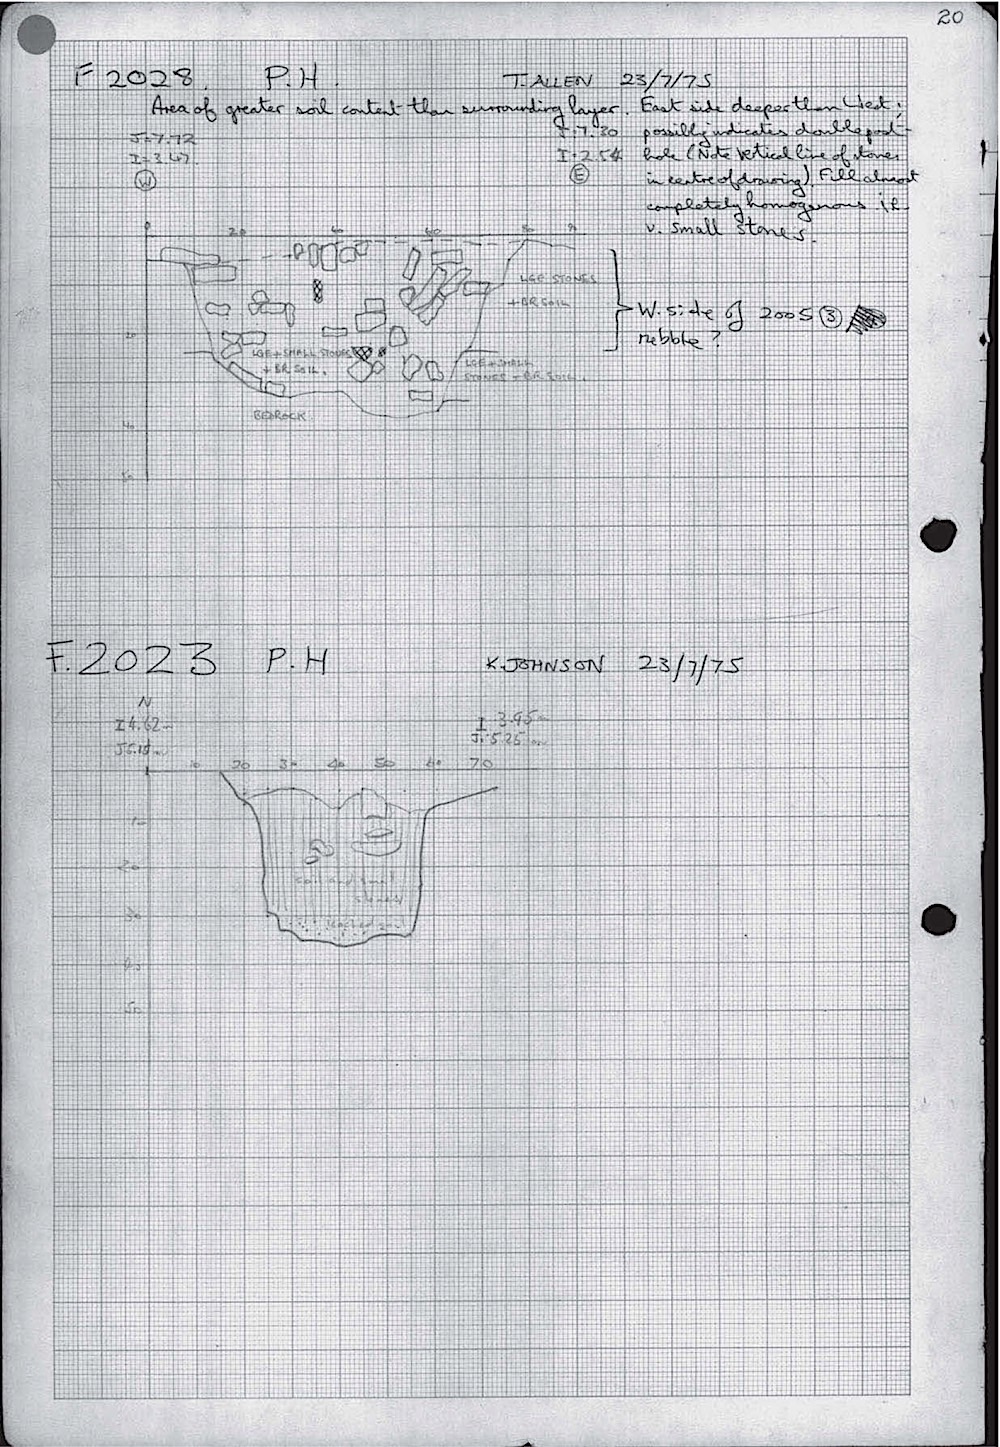 20
F 2028. P.H. T. ALLEN 23/7/75
Area of greater soil content than surrounding layer. East side deeper than West;
J=7.72 J=7.30 possibly indicates double post-
I=3.47 I=2.54 hole (Note vertical line of stones
W E in centre of drawing). Fill almost
completely homogenous i.e.
v. small stones.
0 20 40 60 80
LGE STONES
+ BR SOIL
W. side of 2005 3
rubble?
20
LGE + SMALL STONES
+ BR SOIL.
LGE + SMALL
STONES + BR SOIL.
BEDROCK
40
50
F. 2023 P.H K. JOHNSON 23/7/75
N
I 4.62 I 3.95
J 5.25
10 20 30 40 50 60 70
20
soil and small
stones
30
40
50